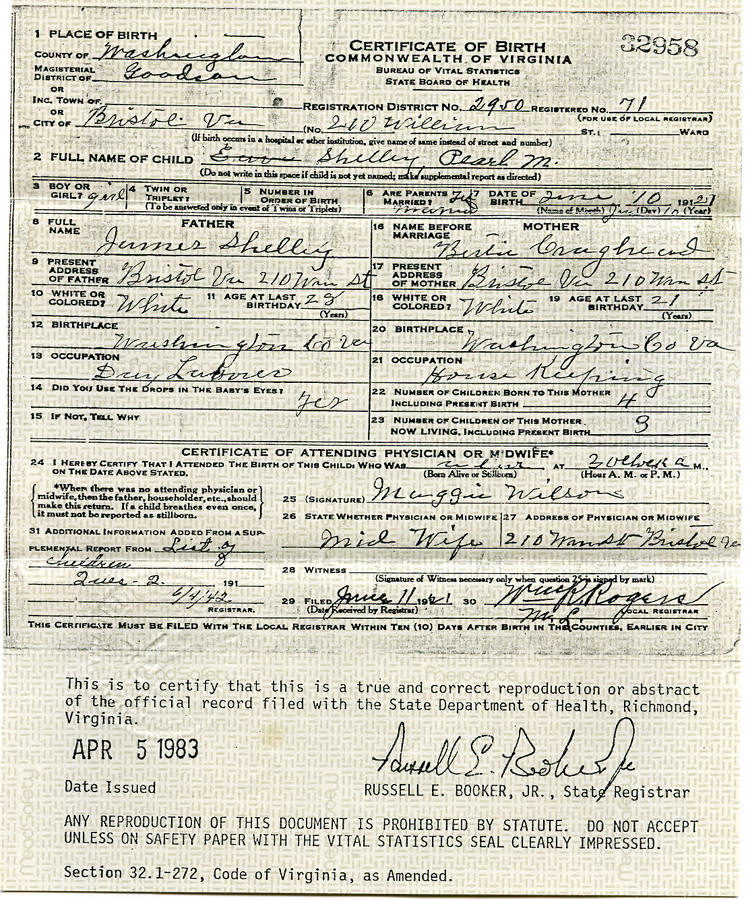 1 PLACE OF BIRTH
COUNTY OF Washington
MAGISTERIAL DISTRICT OF Goodson
OR
INC. TOWN OF
OR
CITY OF Bristol Va
CERTIFICATE OF BIRTH
COMMONWEALTH OF VIRGINIA
BUREAU OF VITAL STATISTICS
STATE BOARD OF HEALTH
32958
REGISTRATION DISTRICT NO. 2950 REGISTERED NO. 71
(FOR USE OF LOCAL REGISTRAR)
(NO. 210 William ST.; WARD
(If birth occurs in a hospital or other institution, give name of same instead of street and number)
2 FULL NAME OF CHILD Shelley, Pearl M.
(Do not write in this space if child is not yet named; make supplemental report as directed)
3 BOY OR GIRL? girl 4 TWIN OR TRIPLET? 5 NUMBER IN ORDER OF BIRTH
(To be answered only in event of Twins or Triplets)
6 ARE PARENTS MARRIED? Yes 7 DATE OF BIRTH June 10 1921
(Name of Month) (Day) (Year)
FATHER
8 FULL NAME James Shelley
9 PRESENT ADDRESS OF FATHER Bristol Va 210 Wm St
10 WHITE OR COLORED? White 11 AGE AT LAST BIRTHDAY 23
(Years)
12 BIRTHPLACE Washington Co Va
13 OCCUPATION Day Laborer
14 DID YOU USE THE DROPS IN THE BABY'S EYES? Yes
15 IF NOT, TELL WHY
MOTHER
16 NAME BEFORE MARRIAGE Craghead
17 PRESENT ADDRESS OF MOTHER Bristol Va 210 Wm St
18 WHITE OR COLORED? White 19 AGE AT LAST BIRTHDAY 21
(Years)
20 BIRTHPLACE Washington Co Va
21 OCCUPATION House Keeping
22 NUMBER OF CHILDREN BORN TO THIS MOTHER INCLUDING PRESENT BIRTH 4
23 NUMBER OF CHILDREN OF THIS MOTHER NOW LIVING, INCLUDING PRESENT BIRTH 3
CERTIFICATE OF ATTENDING PHYSICIAN OR MIDWIFE*
24 I HEREBY CERTIFY THAT I ATTENDED THE BIRTH OF THIS CHILD; WHO WAS AT M.,
ON THE DATE ABOVE STATED. (Born Alive or Stillborn) (Hour A. M. or P. M.)
*When there was no attending physician or
midwife, then the father, householder, etc., should
make this return. If a child breathes even once,
it must not be reported as stillborn.
25 (SIGNATURE) Maggie Wilson
26 STATE WHETHER PHYSICIAN OR MIDWIFE Mid Wife
27 ADDRESS OF PHYSICIAN OR MIDWIFE 210 Wm St Bristol Va
31 ADDITIONAL INFORMATION ADDED FROM A SUPPLEMENTAL REPORT FROM List of
Children
Ques-2. 191
6/4/42
REGISTRAR.
28 WITNESS
(Signature of Witness necessary only when question 25 is signed by mark)
29 FILED June 11 1921 30 Rogers
(Date Received by Registrar) LOCAL REGISTRAR
THIS CERTIFICATE MUST BE FILED WITH THE LOCAL REGISTRAR WITHIN TEN (10) DAYS AFTER BIRTH IN THE COUNTIES, EARLIER IN CITY
This is to certify that this is a true and correct reproduction or abstract
of the official record filed with the State Department of Health, Richmond,
Virginia.
APR 5 1983
Date Issued
Russell E. Booker Jr
RUSSELL E. BOOKER, JR., State Registrar
ANY REPRODUCTION OF THIS DOCUMENT IS PROHIBITED BY STATUTE. DO NOT ACCEPT
UNLESS ON SAFETY PAPER WITH THE VITAL STATISTICS SEAL CLEARLY IMPRESSED.
Section 32.1-272, Code of Virginia, as Amended.
MeadSafety